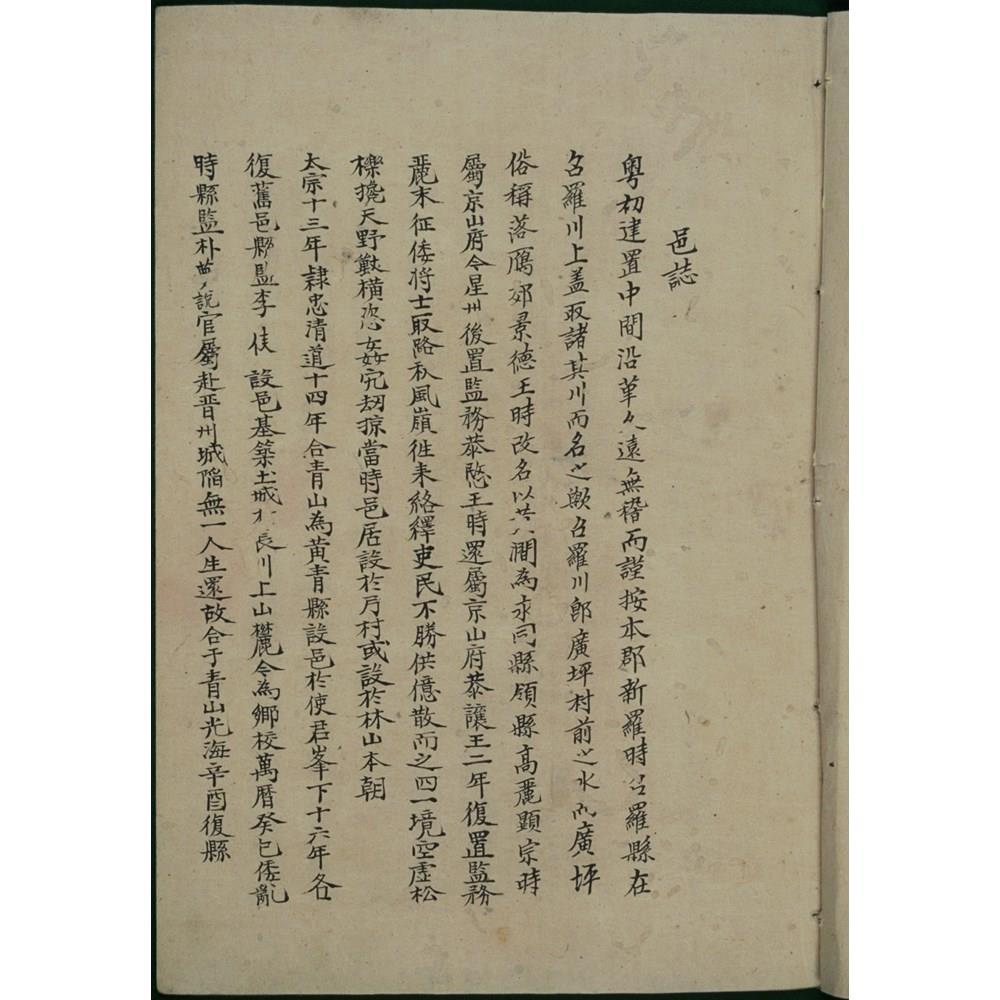 邑誌
粤初建置中間沿革久遠無稽而謹按本郡新羅時召羅縣在
召羅川上盖取諸其川而名之歟召羅川郎廣坪村前之水而廣坪
俗稱落鴈郊景德王時改名以其澗為永同縣領縣高麗顯宗時
屬京山府今星州後置監務恭愍王時還屬京山府恭讓王二年復置監務
麗末征倭将士取路秋風嶺徃来絡繹吏民不勝供億散而之四一境空虛松
櫟攙天野獸橫恣姦宄刼掠當時邑居設於月村或設於林山本朝
太宗十三年隷忠清道十四年合青山為黃青縣設邑於使君峯下十六年各
復舊邑縣監李侅設邑基築土城於長川上山麓今為鄉校萬曆癸巳倭亂
時縣監朴夢說官屬赴晋州城陷無一人生還故合于青山光海辛酉復縣